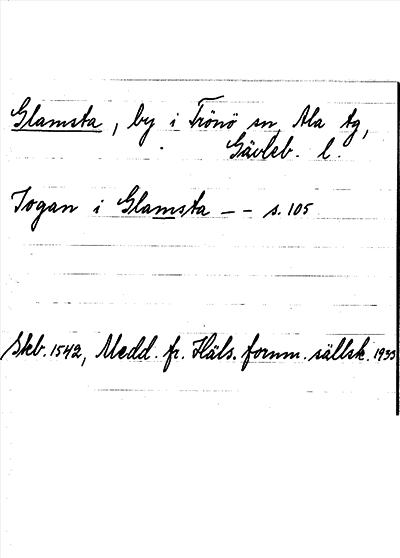 Glamsta, by i Trönö sn, Ala tg,
Gävleb. l.
Jogan i Glamsta -- s. 105
Skb. 1542, Medd. fr. Häls. fornm. sällsk. 1933